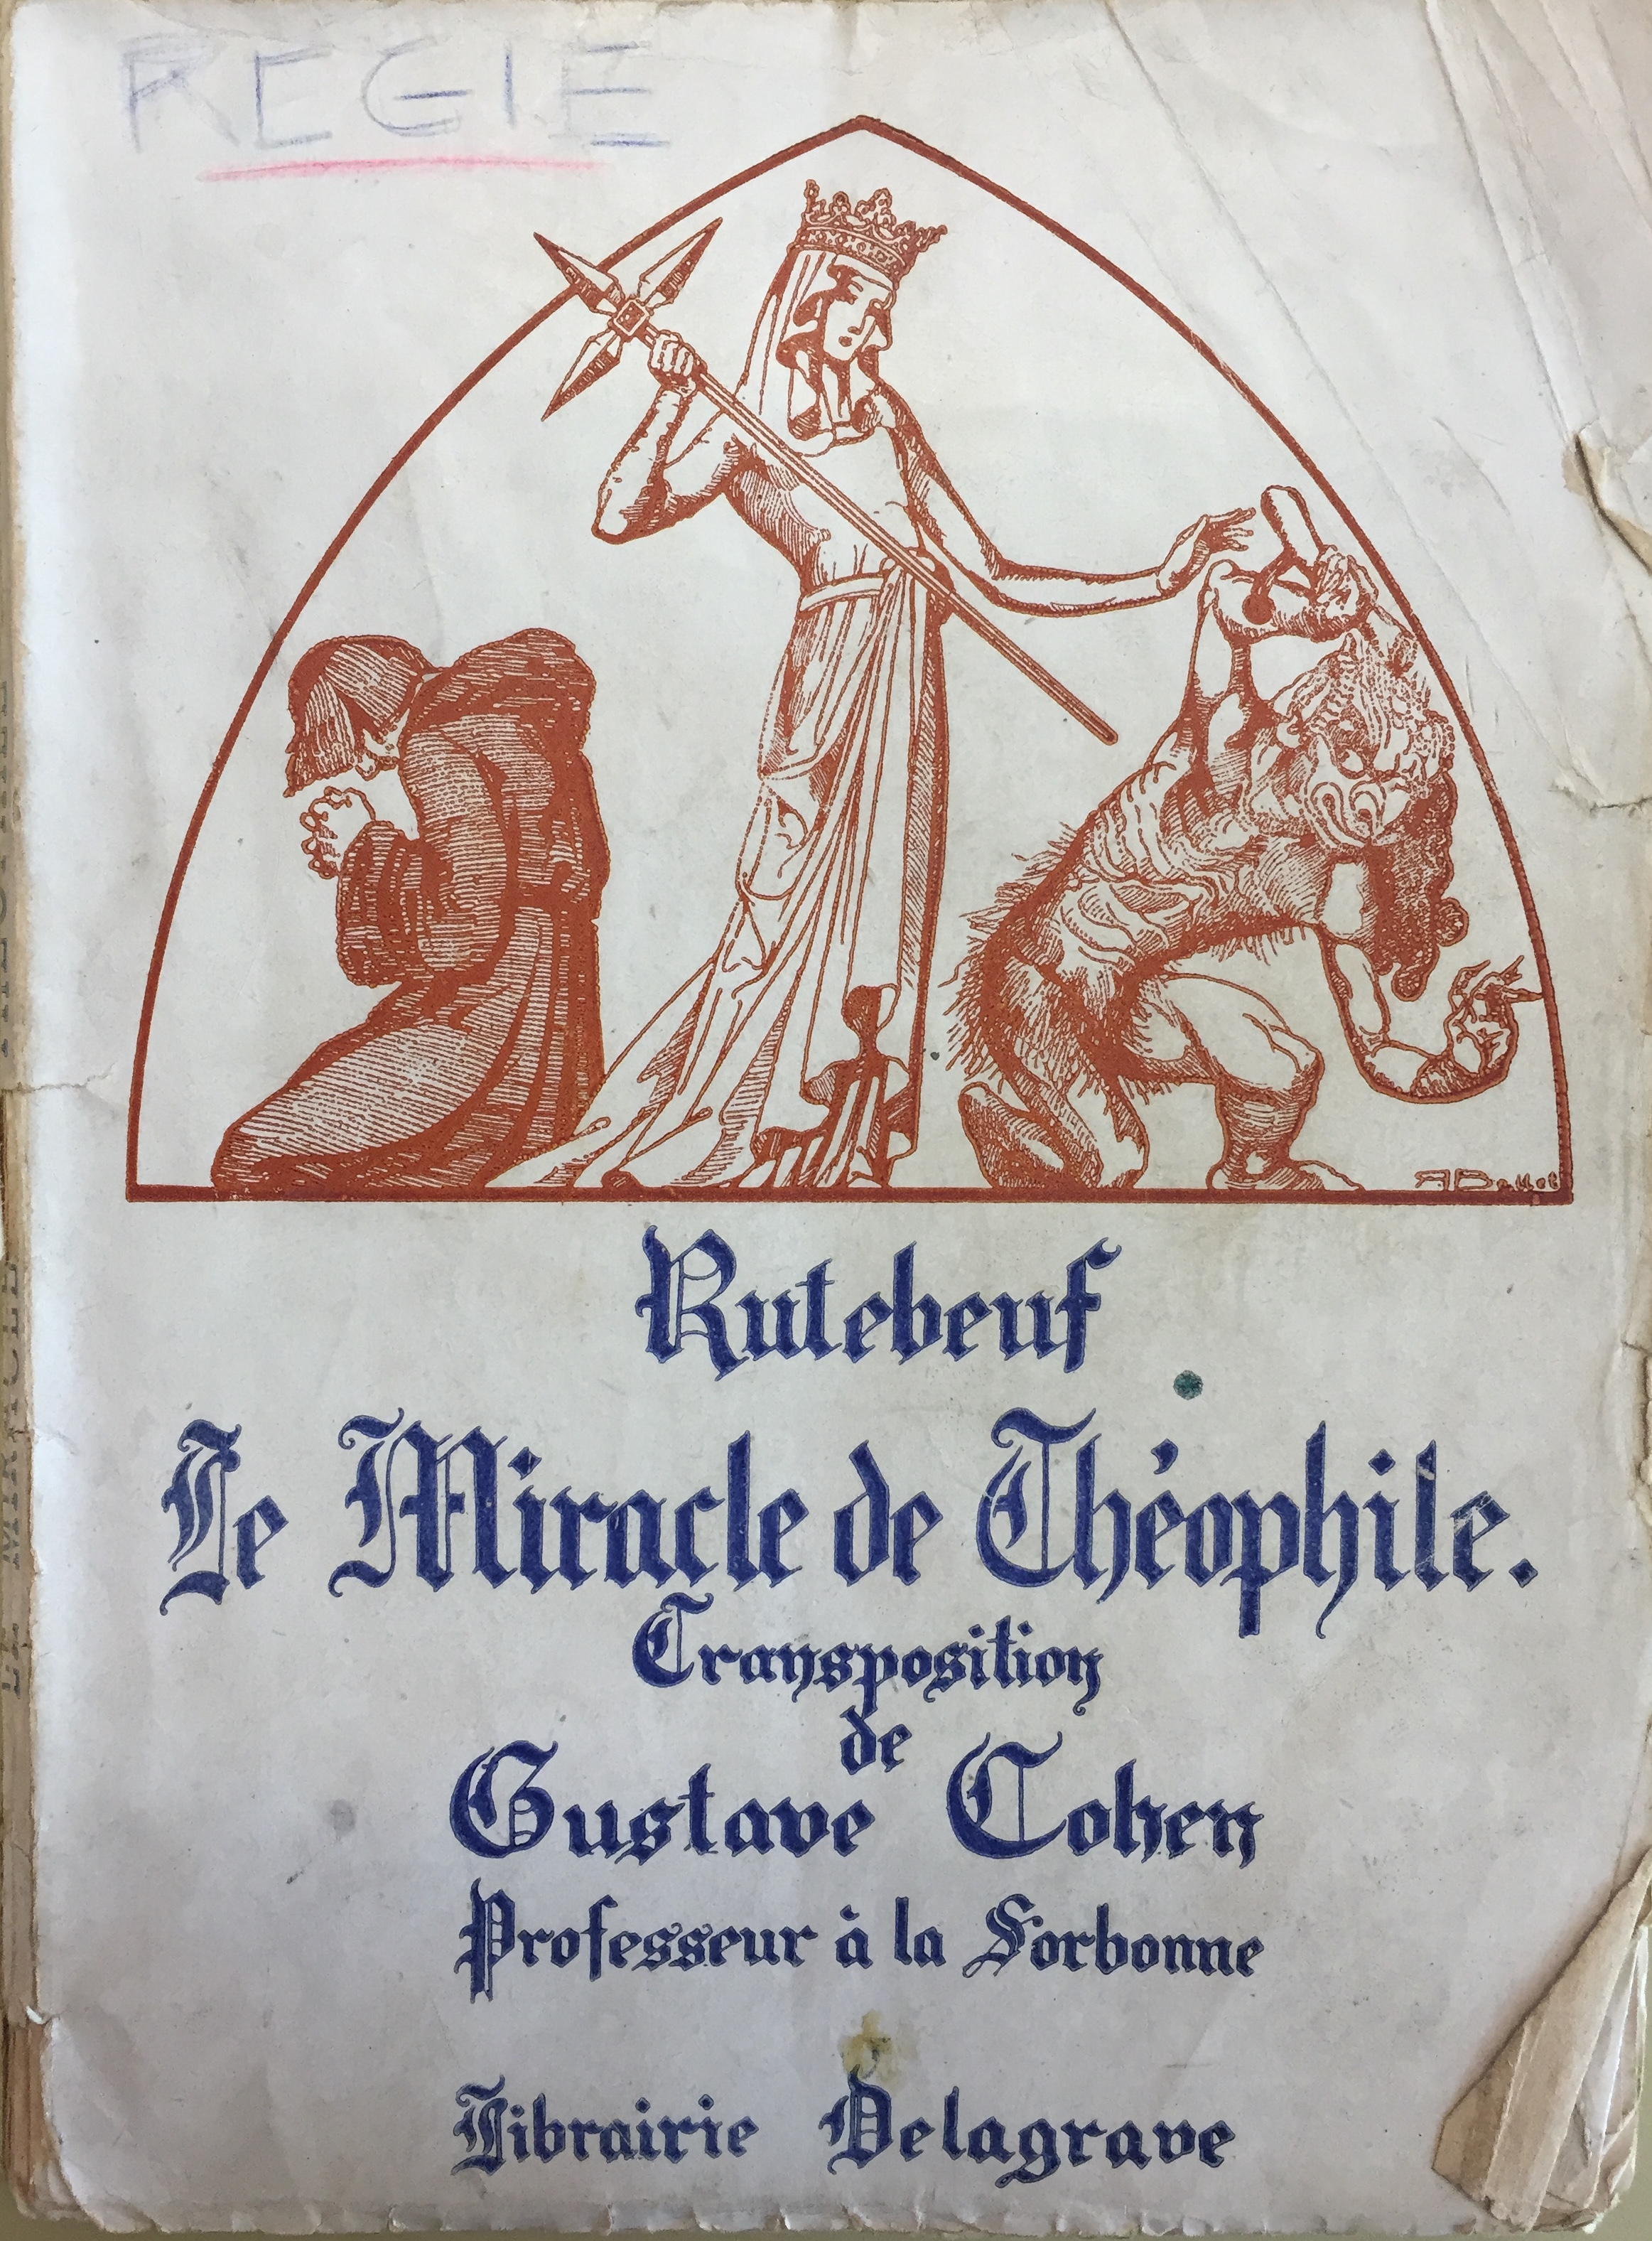 REGIE
Rutebeuf
Le Miracle de Théophile.
Transposition
de
Gustave Cohen
Professeur à la Sorbonne
Librairie Delagrave